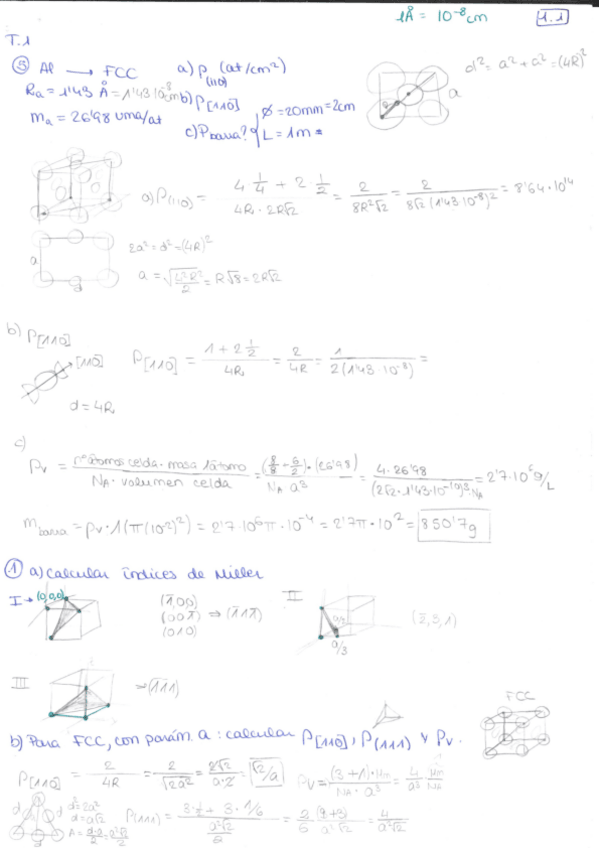 1Å = 10⁻⁸cm
1.1
T.1
⑤ Al → FCC a) ρ(110) (at/cm²) d² = a² + a² = (4R)²
Ra = 1'43 Å = 1'43·10⁻⁸cm b) ρ[110] ∅ = 20mm = 2cm a
ma = 26'98 uma/at c) Pbarra? L = 1m
a) ρ(110) = (4·1/4 + 2·1/2)/(4R·2R√2) = 2/(8R²√2) = 2/(8√2 (1'43·10⁻⁸)²) = 8'64·10¹⁴
2a² = d² = (4R)²
a d
a = √(4²R²/2) = R√8 = 2R√2
b) ρ[110]
[110] ρ[110] = (1 + 2·1/2)/4R = 2/4R = 1/(2(1'43·10⁻⁸)) =
d = 4R
c)
ρv = (nº átomos celda · masa 1 átomo)/(NA · volumen celda) = ((8/8 + 6/2)·(26'98))/(NA a³) = (4·26'98)/((2√2·1'43·10⁻¹⁰)³·NA) = 2'7·10⁶ g/L
mbarra = ρv·1(π(10⁻²)²) = 2'7·10⁶π·10⁻⁴ = 2'7π·10² = 850'7g
① a) calcular índices de Miller
I → (0,0,0) (1̄,0,0) II
(0 0 1̄) ⇒ (1̄11̄) (2̄,3,1)
(0 1 0) a/2 a/3
III → (1̄11)
FCC
b) Para FCC, con parám. a: calcular ρ[110], ρ(111) y ρv.
ρ[110] = 2/4R = 2/√(2a²) = 2√2/(a·2) = √2/a ρv = ((3+1)·Mm)/(NA·a³) = 4/a³ · Mm/NA
d d d d² = 2a²
d = a√2
ρ(111) = (3·1/2 + 3·1/6)/(a²√2/2) = 2/6 (9+3)/(a²√2) = 4/(a²√2)